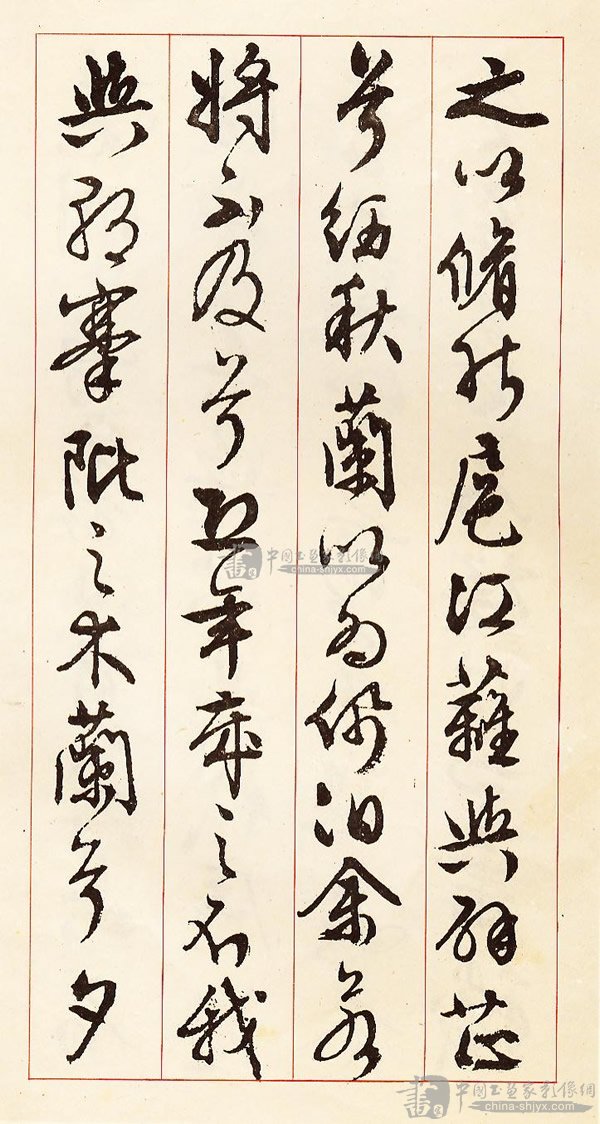 之以脩能扈江蘺與辟芷
兮紉秋蘭以為佩汩余若
將不及兮恐年歲之不我
與朝搴阰之木蘭兮夕
書 中國书画家影像網
china-shjyx.com
書 中國书画家影像網
china-shjyx.com